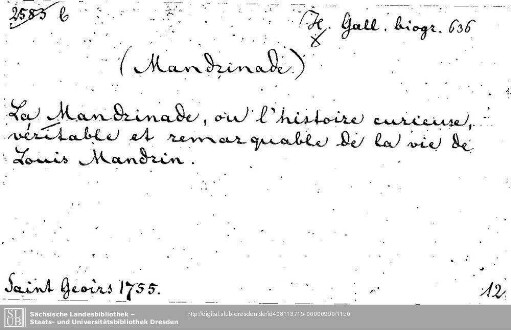 2583 b
H. Gall. biogr. 636
x
(Mandrinade.)
La Mandrinade, ou l'histoire curieuse,
véritable et remarquable de la vie de
Louis Mandrin.
Saint Geoirs 1755.
12.
Sächsische Landesbibliothek –
Staats- und Universitätsbibliothek Dresden